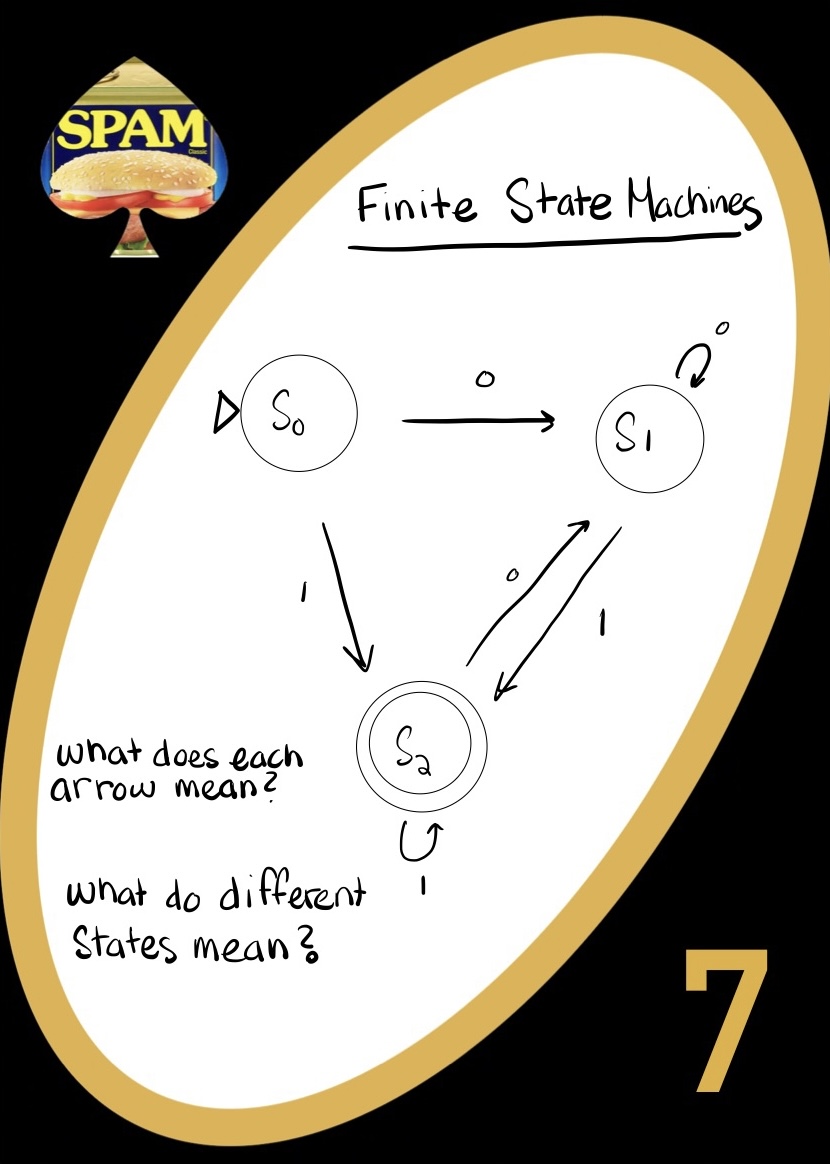 SPAM
Classic
Finite State Machines
0
0
S0
S1
1
0
1
S2
what does each
arrow mean?
1
what do different
States mean?
7